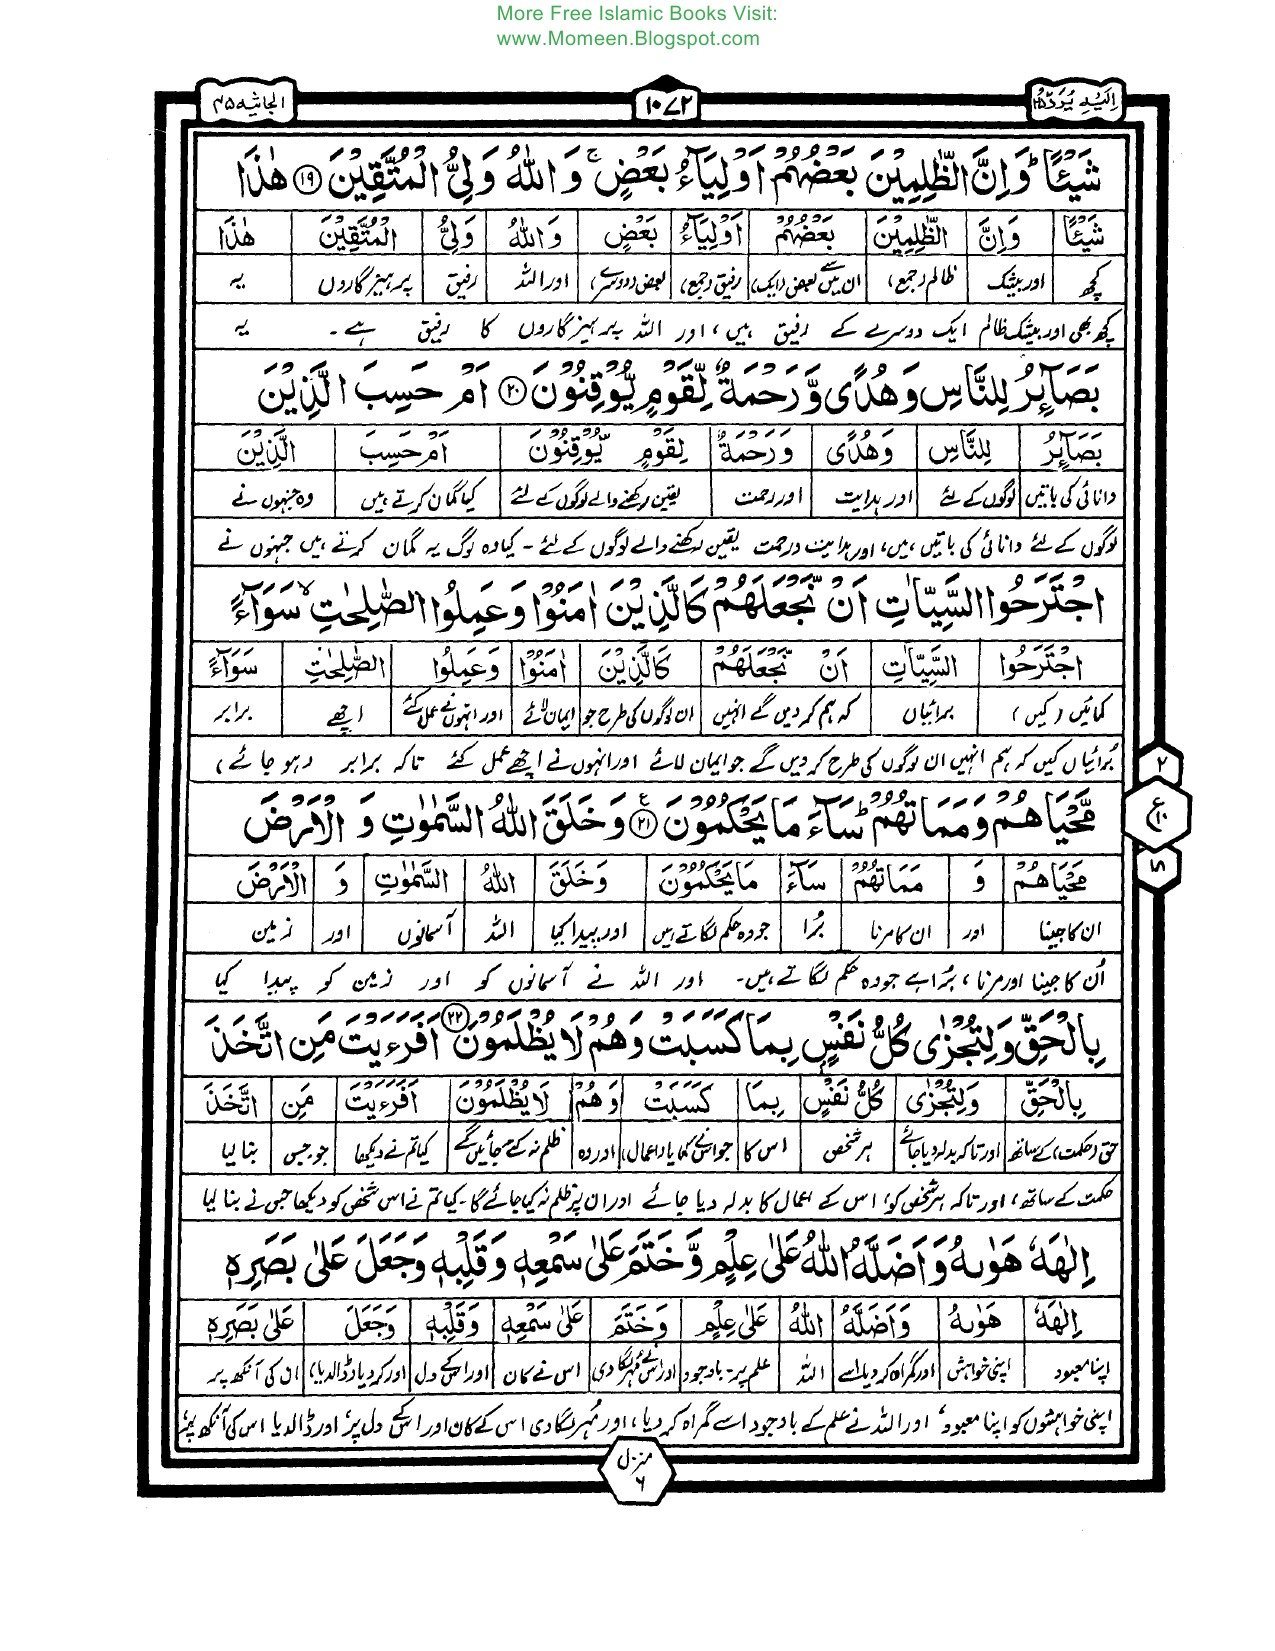 More Free Islamic Books Visit:
www.Momeen.Blogspot.com
اِلَیْهِ یُرَدُّ ۲۵
۱۰۷۲
الجاثیه ۴۵
شَیْئًا ؕ وَ اِنَّ الظّٰلِمِیْنَ بَعْضُهُمْ اَوْلِیَآءُ بَعْضٍ ۚ وَ اللّٰهُ وَلِیُّ الْمُتَّقِیْنَ ۱۹ هٰذَا
شَیْئًا وَ اِنَّ الظّٰلِمِیْنَ بَعْضُهُمْ اَوْلِیَآءُ بَعْضٍ وَ اللّٰهُ وَلِیُّ الْمُتَّقِیْنَ هٰذَا
کچھ اور بیشک ظالم (جمع) ان میں سے بعض (ایک) رفیق (جمع) بعض (دوسرے) اور اللہ رفیق پرہیزگاروں یہ
کچھ بھی اور بیشک ظالم ایک دوسرے کے رفیق ہیں، اور اللہ پرہیزگاروں کا رفیق ہے۔ یہ
بَصَآئِرُ لِلنَّاسِ وَ هُدًی وَّ رَحْمَةٌ لِّقَوْمٍ یُّوْقِنُوْنَ ۲۰ اَمْ حَسِبَ الَّذِیْنَ
بَصَآئِرُ لِلنَّاسِ وَ هُدًی وَ رَحْمَةٌ لِقَوْمٍ یُّوْقِنُوْنَ اَمْ حَسِبَ الَّذِیْنَ
دانائی کی باتیں لوگوں کے لئے اور ہدایت اور رحمت یقین رکھنے والے لوگوں کے لئے کیا گمان کرتے ہیں وہ جنہوں نے
لوگوں کے لئے دانائی کی باتیں ہیں، اور ہدایت و رحمت یقین رکھنے والے لوگوں کے لئے - کیا وہ لوگ یہ گمان کرتے ہیں جنہوں نے
اجْتَرَحُوا السَّیِّاٰتِ اَنْ نَّجْعَلَهُمْ كَالَّذِیْنَ اٰمَنُوْا وَ عَمِلُوا الصّٰلِحٰتِ ۙ سَوَآءً
اجْتَرَحُوا السَّیِّاٰتِ اَنْ نَّجْعَلَهُمْ كَالَّذِیْنَ اٰمَنُوْا وَ عَمِلُوا الصّٰلِحٰتِ سَوَآءً
کمائیں (کیں) برائیاں کہ ہم کردیں گے انہیں ان لوگوں کی طرح جو ایمان لائے اور انہوں نے عمل کئے اچھے برابر
برُائیاں کیں کہ ہم انہیں ان لوگوں کی طرح کردیں گے جو ایمان لائے اور انہوں نے اچھے عمل کئے تاکہ برابر (ہوجائے)
مَّحْیَاهُمْ وَ مَمَاتُهُمْ ؕ سَآءَ مَا یَحْكُمُوْنَ ۲۱ وَ خَلَقَ اللّٰهُ السَّمٰوٰتِ وَ الْاَرْضَ
۲
ع
۱۰
۱۸
مَحْیَاهُمْ وَ مَمَاتُهُمْ سَآءَ مَا یَحْكُمُوْنَ وَ خَلَقَ اللّٰهُ السَّمٰوٰتِ وَ الْاَرْضَ
ان کا جینا اور ان کا مرنا بُرا جو وہ حکم لگاتے ہیں اور پیدا کیا اللہ آسمانوں اور زمین
اُن کا جینا اور مرنا، بُرا ہے جو وہ حکم لگاتے ہیں۔ اور اللہ نے آسمانوں کو اور زمین کو پیدا کیا
بِالْحَقِّ وَ لِتُجْزٰی كُلُّ نَفْسٍۭ بِمَا كَسَبَتْ وَ هُمْ لَا یُظْلَمُوْنَ ۲۲ اَفَرَءَیْتَ مَنِ اتَّخَذَ
بِالْحَقِّ وَ لِتُجْزٰی كُلُّ نَفْسٍ بِمَا كَسَبَتْ وَ هُمْ لَا یُظْلَمُوْنَ اَفَرَءَیْتَ مَنِ اتَّخَذَ
حق (حکمت) کے ساتھ اور تاکہ بدلہ دیا جائے ہر شخص اس کا جو اس نے کمایا (اعمال) اور وہ ظلم نہ کئے جائیں گے کیا تم نے دیکھا جو جس بنا لیا
حکمت کے ساتھ، اور تاکہ ہر شخص کو اس کے اعمال کا بدلہ دیا جائے اور ان پر ظلم نہ کیا جائے گا۔ کیا تم نے اس شخص کو دیکھا جس نے بنا لیا
اِلٰهَهٗ هَوٰىهُ وَ اَضَلَّهُ اللّٰهُ عَلٰی عِلْمٍ وَّ خَتَمَ عَلٰی سَمْعِهٖ وَ قَلْبِهٖ وَ جَعَلَ عَلٰی بَصَرِهٖ
اِلٰهَهٗ هَوٰىهُ وَ اَضَلَّهُ اللّٰهُ عَلٰی عِلْمٍ وَ خَتَمَ عَلٰی سَمْعِهٖ وَ قَلْبِهٖ وَ جَعَلَ عَلٰی بَصَرِهٖ
اپنا معبود اپنی خواہش اور گمراہ کر دیا اسے اللہ علم پر - باوجود اور اس نے مہر لگا دی اس نے کان اور اس کے دل اور کر دیا (ڈالدیا) ان کی آنکھ پر
اپنی خواہشوں کو اپنا معبود، اور اللہ نے علم کے باوجود اسے گمراہ کر دیا، اور مُہر لگا دی اس کے کان اور اس کے دل پر، اور ڈالدیا اس کی آنکھ پر
منزل
۶